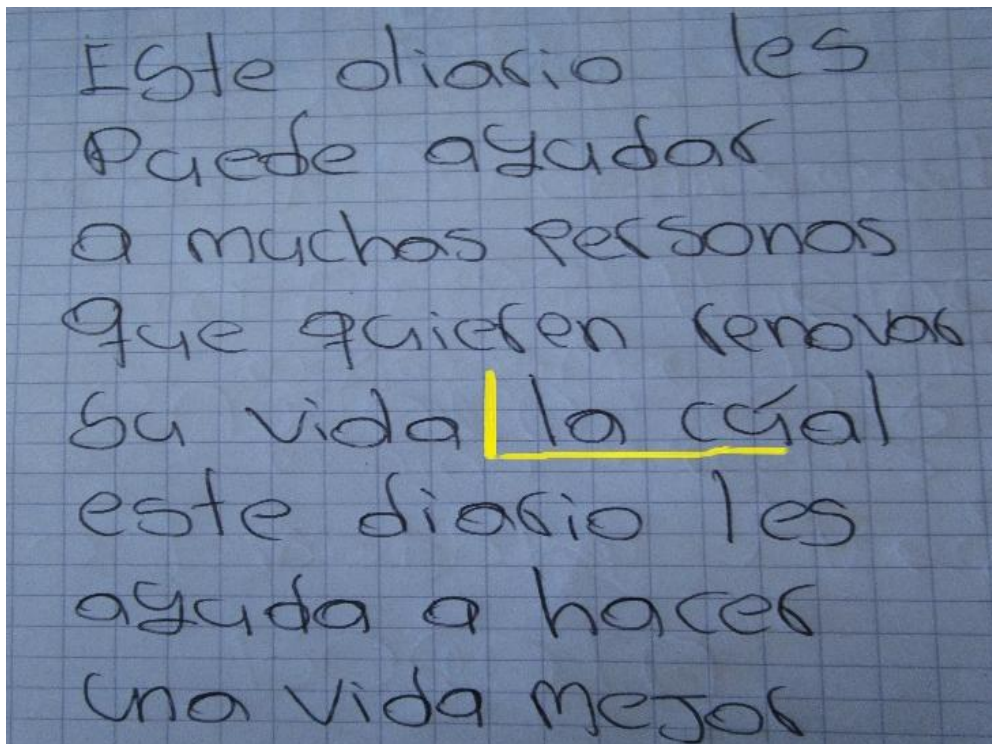 Este diario les
Puede ayudar
a muchas personas
que quieren renovar
su vida la cúal
este diario les
ayuda a hacer
una vida mejor